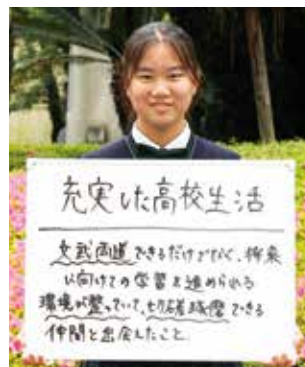 充実した高校生活
文武両道できるだけでなく、将来
に向けての学習を進められる
環境が整っていて、切磋琢磨できる
仲間と出会えたこと